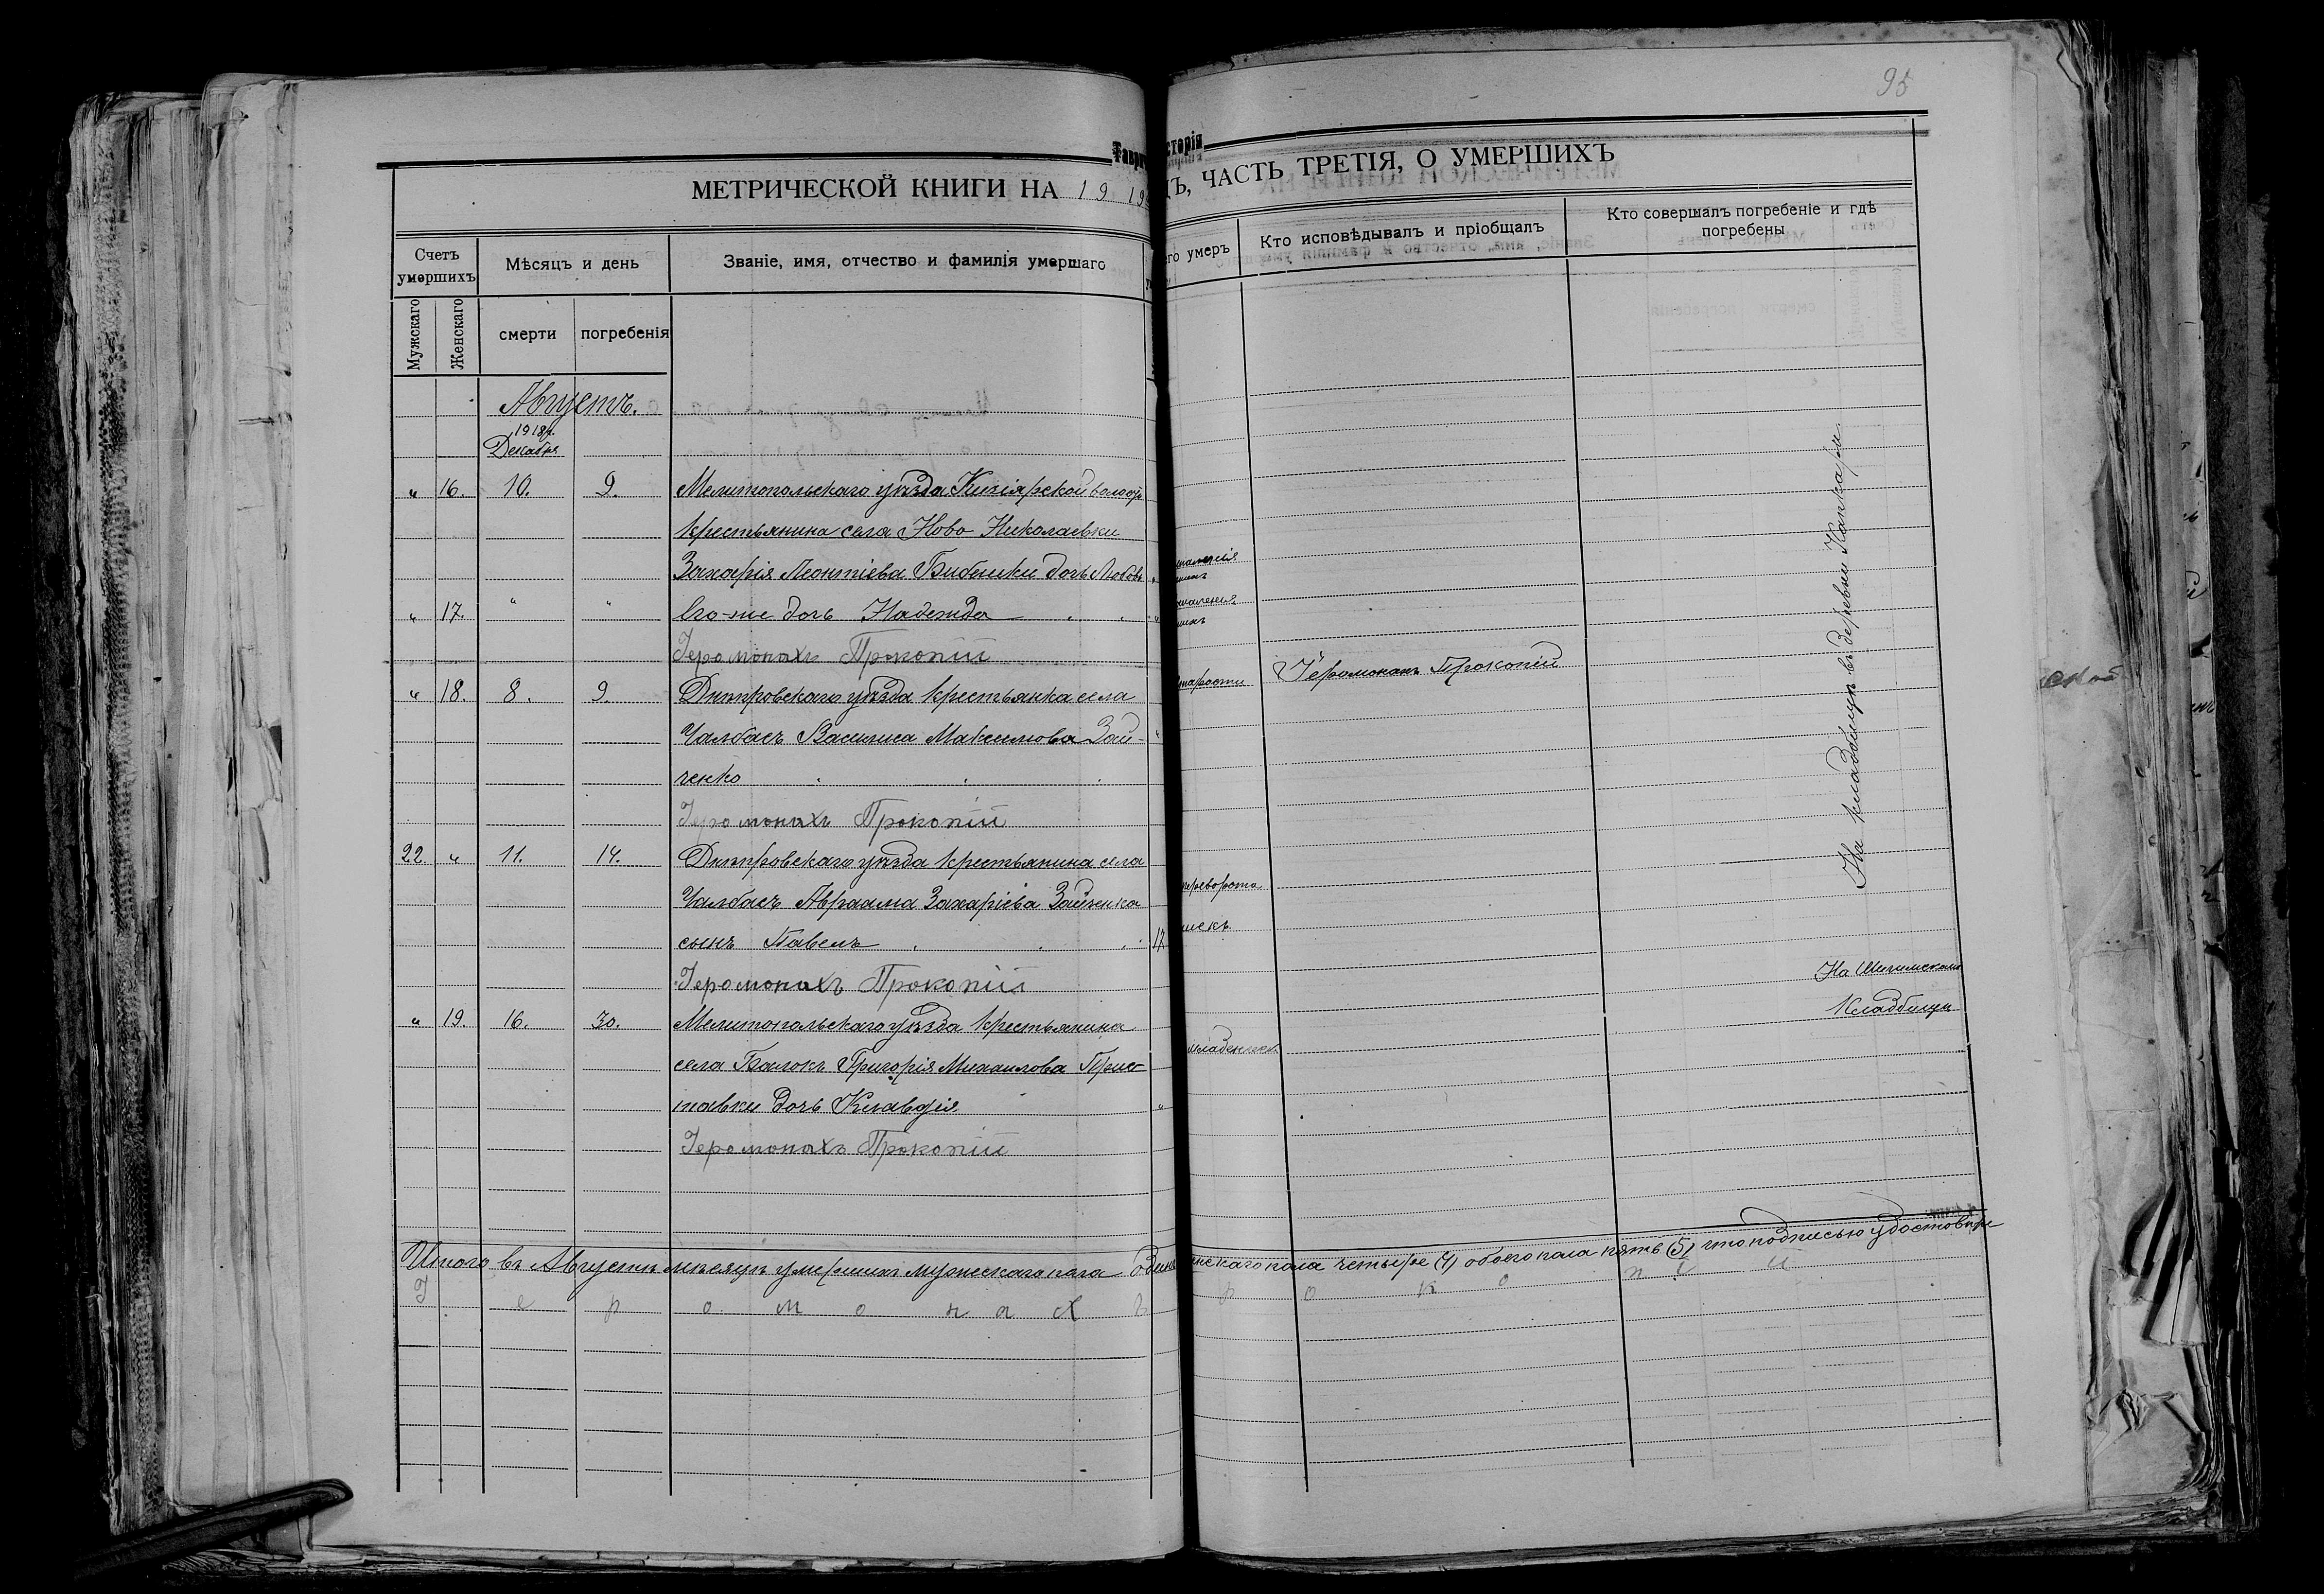 95
МЕТРИЧЕСКОЙ КНИГИ НА 1919
ЧАСТЬ ТРЕТІЯ, О УМЕРШИХЪ
Счетъ умершихъ
Мѣсяцъ и день
Званіе, имя, отчество и фамилія умершаго
его умеръ
Кто исповѣдывалъ и пріобщалъ
Кто совершалъ погребеніе и гдѣ погребены
Мужскаго
Женскаго
смерти
погребенія
Августъ.
1918г.
Декабря
" 16. 10. 9. Мелитопольскаго уѣзда Кизіярской
крестьянина села Ново Николаевки
Захарія Леонтіева Бибики дочь Любовь
" 17. " " Его-же дочь Надежда
Іеромонахъ Прокопій
" 18. 8. 9. Днѣпровскаго уѣзда крестьянка села
старости Іеромонахъ Прокопій
Чалбасъ Василиса Максимова Зай-
ченко
Іеромонахъ Прокопій
22. " 11. 14. Днѣпровскаго уѣзда крестьянина села
Чалбасъ Авраама Захаріева Зайченка
сынъ Павелъ 17
Іеромонахъ Прокопій
" 19. 16. 30. Мелитопольскаго уѣзда крестьянина
села Балокъ Григорія Михаилова
тавки дочь Клавдія
Іеромонахъ Прокопій
На кладбищѣ въ деревни
На
кладбищѣ
Итого въ Августѣ мѣсяцѣ умершихъ мужескаго пола одинъ
женскаго пола четыре (4) обоего пола пять (5) что подписью
І е р о м о н а х ъ
р о к о п і й